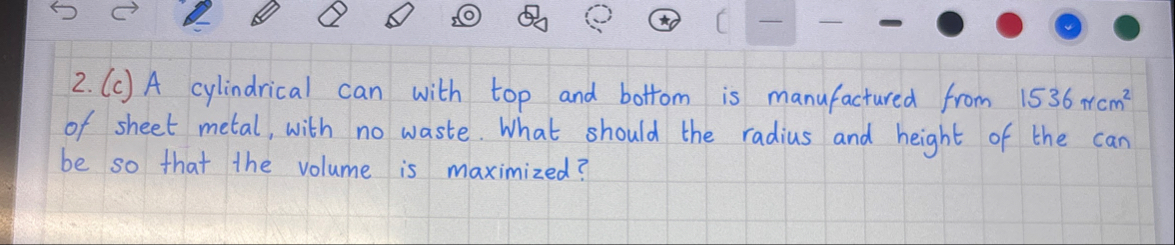 2. (c) A cylindrical can with top and bottom is manufactured from 1536 π cm²
of sheet metal, with no waste. What should the radius and height of the can
be so that the volume is maximized?